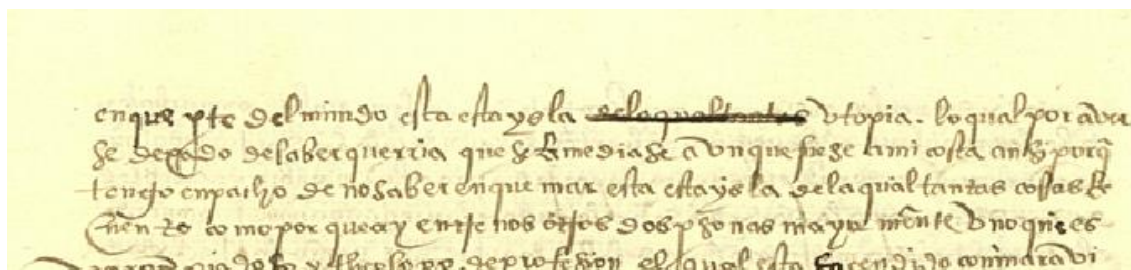 en que pte del mundo esta esta ysla de la qual tantas utopia. lo qual por aver
se dexado de saber querria que se Remediase aunque fuese a mi costa ansi porq
tengo enpacho de no saber en que mar esta esta ysla de la qual tantas cossas Re
cuento como por que ay entre nosotros dos psonas mayor mente uno que es
y theologo de profesion el qual esta encendido con maravi